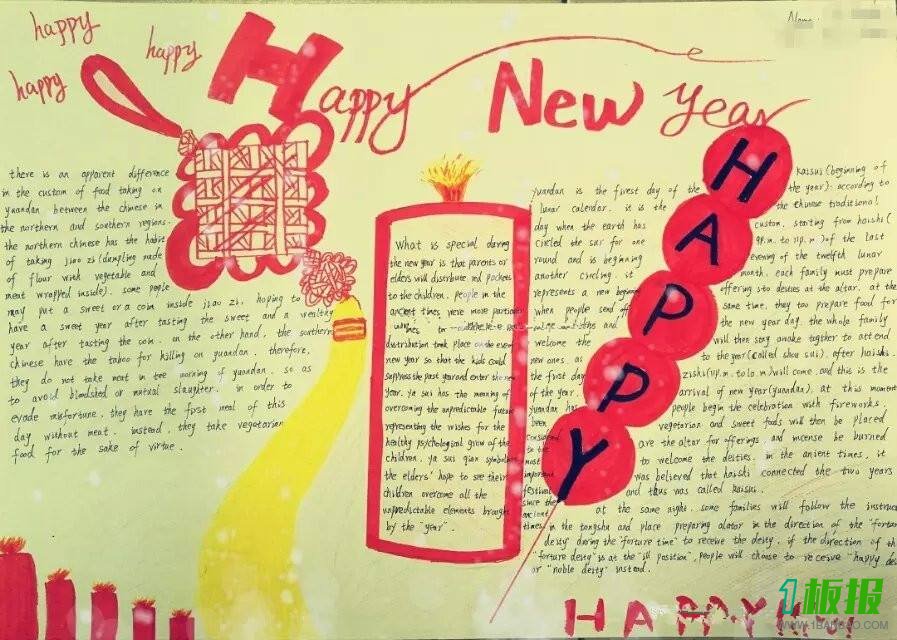 happy
happy
happy
Happy New Year
Name:
there is an apparent difference
in the custom of food taking on
yuandan between the chinese in
the northern and southern regions.
the northern chinese has the habit
of taking jiao zi (dumpling made
of flour with vegetable and
meat wrapped inside). some people
may put a sweet or a coin inside jiao zi. hoping to
have a sweet year after tasting the sweet and a wealthy
year after tasting the coin. on the other hand, the southern
chinese have the taboo for killing on yuandan. therefore,
they do not take meat in the morning of yuandan, so as
to avoid bloodshed or mutual slaughter. in order to
evade misfortune. they have the first meal of this
day without meat. instead, they take vegetarian
food for the sake of virtue.
What is special during
the new year is that parents or
elders will distribute red pockets
to the children. people in the
ancient times were more particular
distribution took place on the even
new year so that the kids could
suppress the past year and enter the new
year. ya sui has the meaning of
overcoming the unpredictable future
representing the wishes for the
healthy psychological grow of the
children. ya sui qian symbolizes
the elders' hope to see their
children overcome all the
unpredictable elements brought
by the "year".
yuandan is the first day of the
lunar calendar. it is the
day when the earth has
circled the sur for one
round and is beginning
another circling. it
represents a new beginning
when people send off
steps and
welcome the
new ones. as
the first day
of the year.
yuandan has
been
considered
to the
most
important
festival
since the
ancient
times
HAPPY
kaisui (beginning of
the year). according to
the chinese traditional
custom, starting from haishi (
9p.m. to 11p.m.) of the last
evening of the twelfth lunar
month. each family must prepare
offering sto deities at the altar. at the
same time, they too prepare food for
the new year day. the whole family
will then stay awake togther to attend
to the year (called shou sui). after haishi.
zishi (11p.m. to 1a.m) will come, and this is the
arrival of new year (yuandan). at this moment
people begin the celebration with fireworks.
vegetarian and sweet foods will then be placed
are the altar for offerings and incense be burned
to welcome the deities. in the ancient times, it
was believed that haishi connected the two years
and thus was called kaisui.
at the same night, some families will follow the instruct
in the tongshu and place preparing alator in the direction of the "fortune
deity" during the "fortune time" to receive the deity. if the direction of the
"fortune deity" is at the "ill position", people will choose to receive "happy dei
or "noble deity" instead.
HAPPY
1板报
WWW.1BANBAO.COM